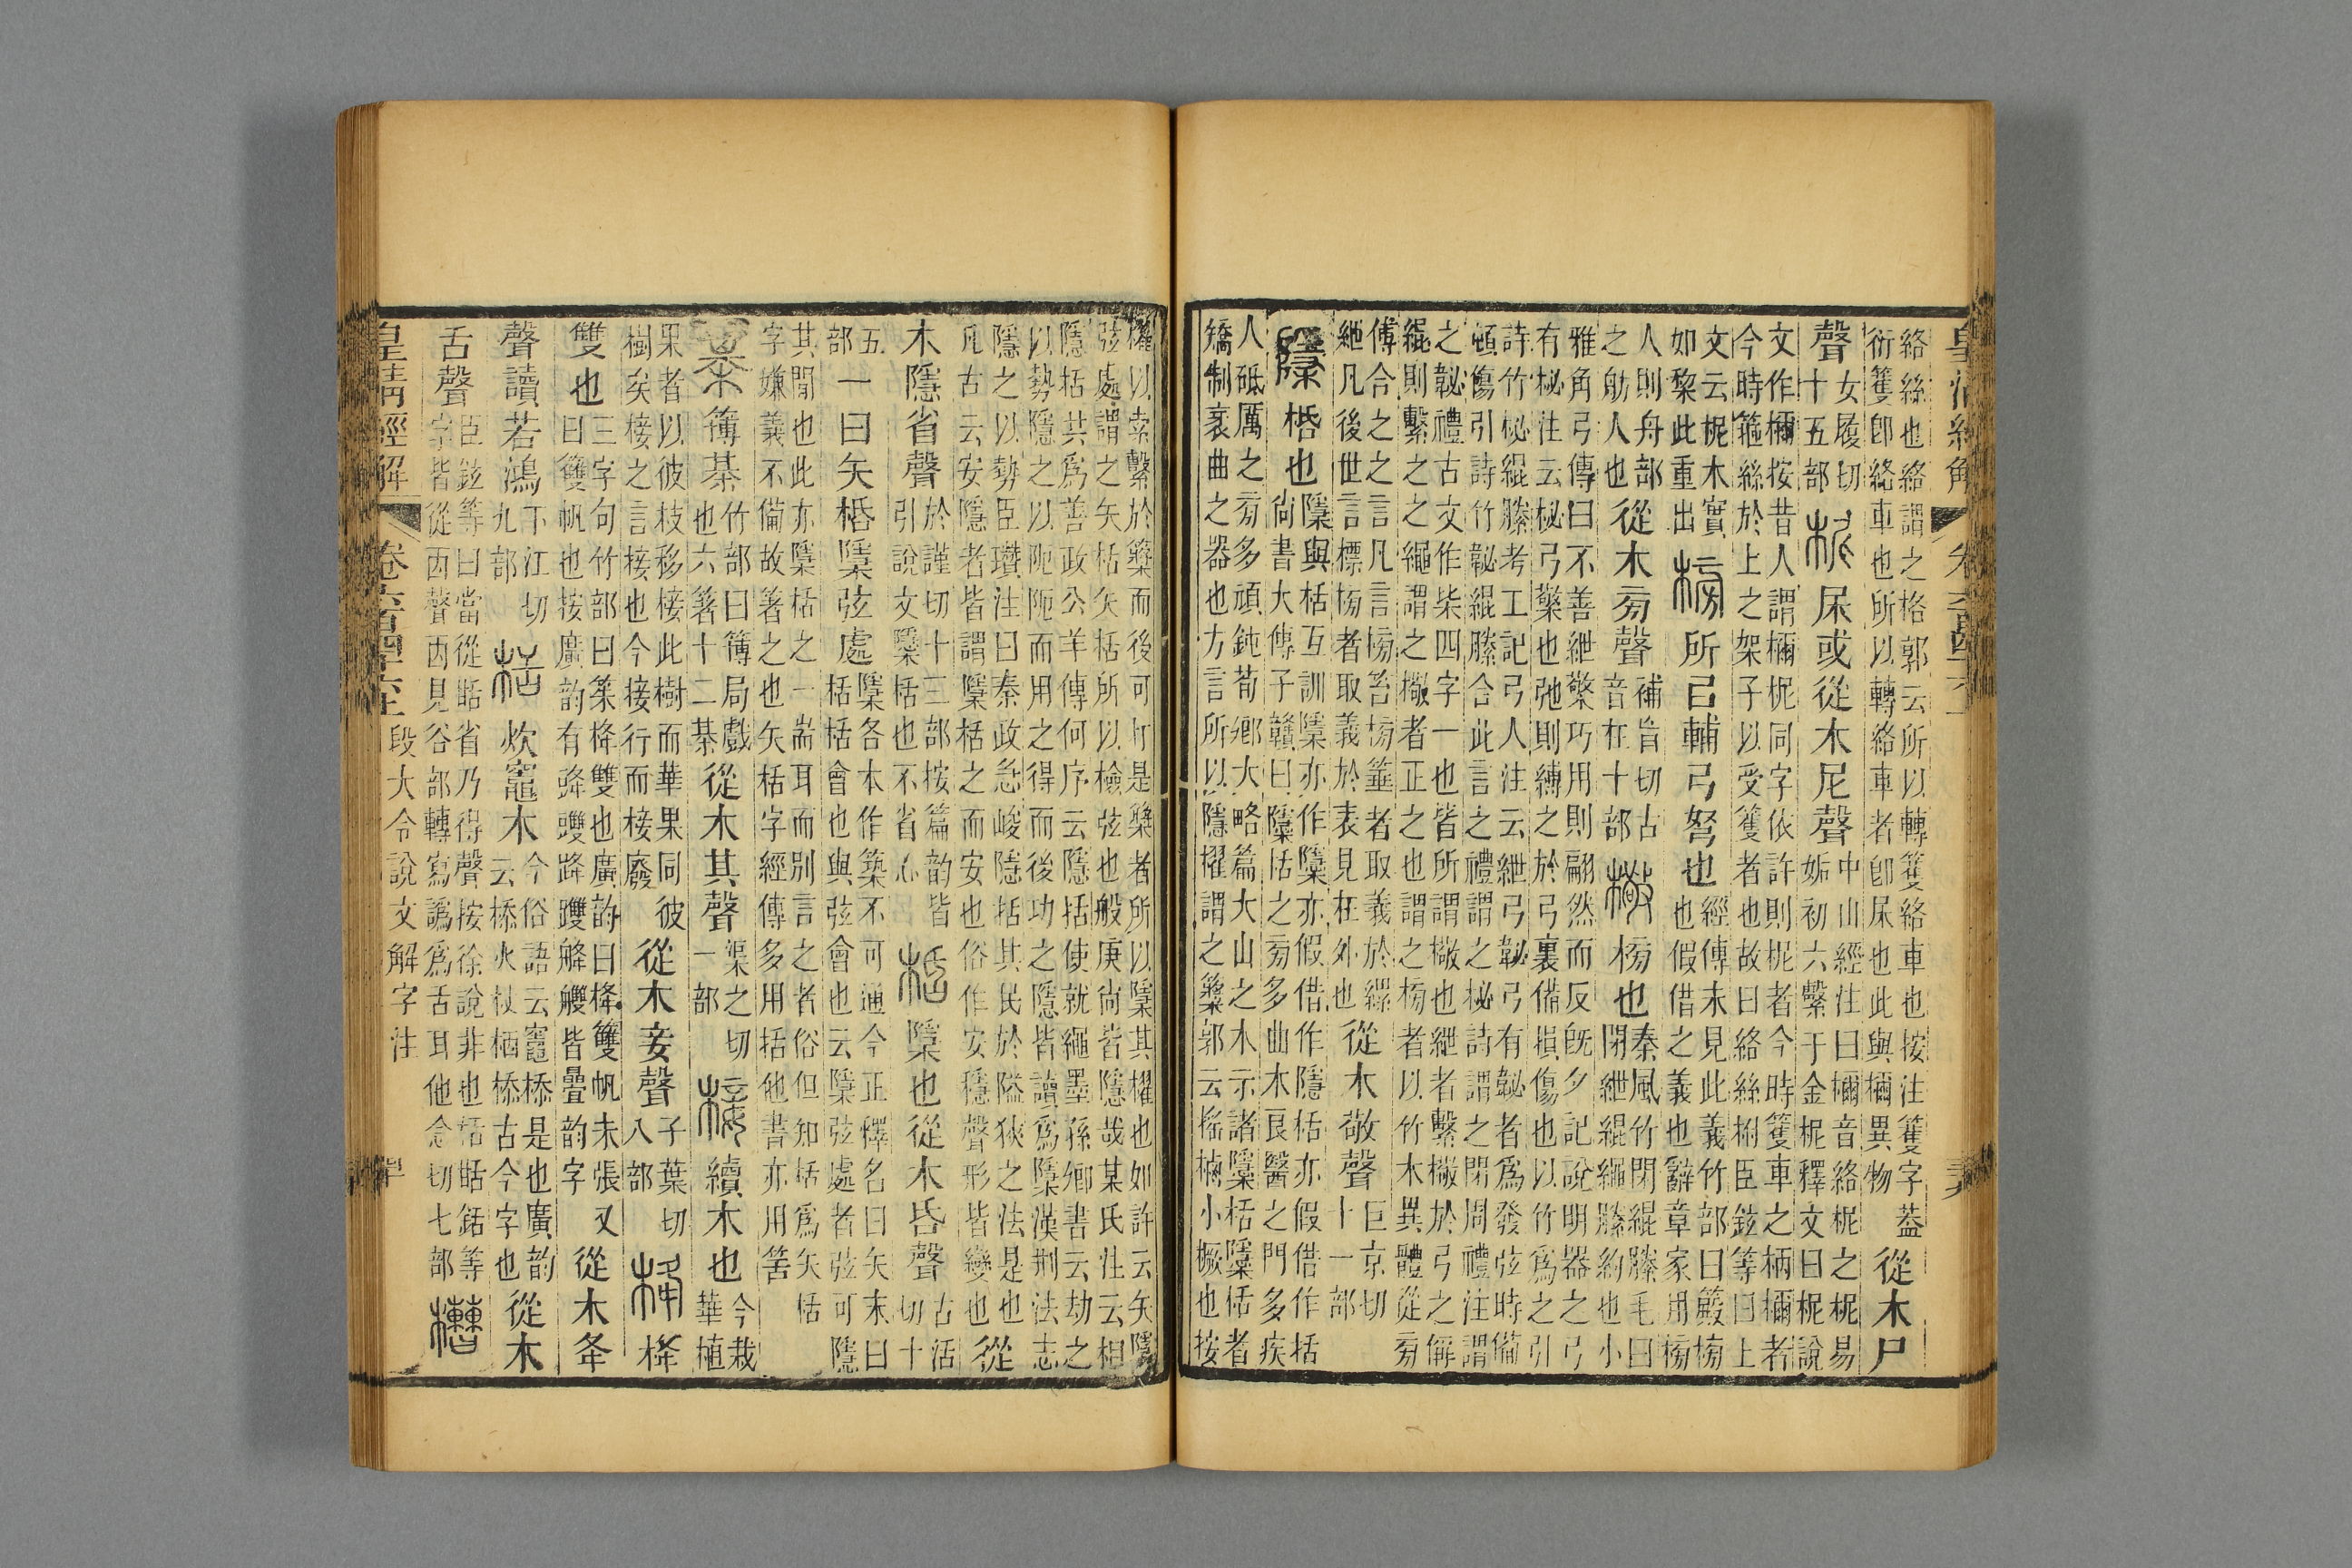 絡絲也絡謂之格郭云所以轉籰絡車也按注籰字蓋
衍籰卽絡車也所以轉絡車者卽㞕也此與檷異物從木尸
聲女履切十五部柅㞕或從木尼聲中山經注曰檷音絡柅之柅易
姤初六繫于金柅釋文曰柅說
文作檷按昔人謂檷柅同字依許則柅者今時籰車之柄檷者
今時箍絲於上之架子以受籰者也故曰絡絲柎臣鉉等曰上
文云柅木實
如棃此重出榜所㠯輔弓弩也經傳未見此義竹部曰䈰榜
也假借之義也辭章家用榜
人則舟部
之舫人也從木㫄聲補盲切古
音在十部檠榜也秦風竹閉緄縢毛曰
閉紲緄繩縢約也小
雅角弓傳曰不善紲檠巧用則翩然而反旣夕記說明器之弓
有柲注云柲弓檠也弛則縛之於弓裏備損傷也以竹爲之引
詩竹柲緄縢考工記弓人注云紲弓䪐弓有䪐者爲發弦時備
頓傷引詩竹䪐緄縢合此言之禮謂之柲詩謂之閉周禮注謂
之䪐禮古文作柴四字一也皆所謂檠也紲者繫檠於弓之偁
緄則繫之之繩謂之檠者正之也謂之榜者以竹木異體從㫄
傅合之之言凡言榜笞榜箠者取義於
紲凡後世言標榜者取義於表見在外也從木敬聲巨京切
十一部
檃栝也檃與栝互訓檃亦作櫽亦假借作隱栝亦假借作括
尙書大傳子贛曰檃栝之㫄多曲木良醫之門多疾
人砥厲之㫄多頑鈍荀鄉大略篇大山之木示諸檃栝檃栝者
矯制衺曲之器也方言所以隱擢謂之䉠郭云搖樐小橛也按
擢以索繫於䉠而後可打是䉠者所以檃其櫂也如許云矢檃
弦處謂之矢栝矢栝所以檢弦也般庚尙皆隱哉某氏注云相
隱栝共爲善政公羊傳何序云隱括使就繩墨孫鄉書云劫之
以勢隱之以阸阸而用之得而後功之隱皆讀爲檃漢㓝法志
隱之以勢臣瓚注曰秦政急峻隱括其民於隘狹之法是也
凡古云安隱者皆謂檃栝之而安也俗作安穩聲形皆變也從
木隱省聲於謹切十三部按篇韵皆
引說文檃栝也不省心桰檃也從木㫪聲古活
切十
五
部一曰矢桰檃弦處檃各本作築不可通今正釋名曰矢末曰
栝栝會也與弦會也云檃弦處者弦可隱
其閒也此亦檃栝之一耑耳而別言之者俗但知栝爲矢栝
字嫌義不備故箸之也矢栝字經傳多用括他書亦用筈
棊簙棊竹部曰簙局戲
也六箸十二棊從木其聲渠之切
一部椄續木也今栽
華植
果者以彼枝移椄此樹而華果同彼
樹矣椄之言接也今接行而椄廢從木妾聲子葉切
八部栙栙
雙也三字句竹部曰䈉栙雙也廣韵曰栙䉶帆未張又
曰䉶帆也按廣韵有𨐁䨇跭躞舽艭皆㬪韵字從木夅
聲讀若鴻下江切
九部栝炊竈木今俗語云竈㮇是也廣韵
云㮇火杖栖㮇古今字也從木
舌聲臣鉉等曰當從甛省乃得聲按徐說非也栝甛銛等
字皆從㐁聲㐁見谷部轉寫譌爲舌耳他念切七部槽
皇淸經解 卷六百四十六上 段大令說文解字注